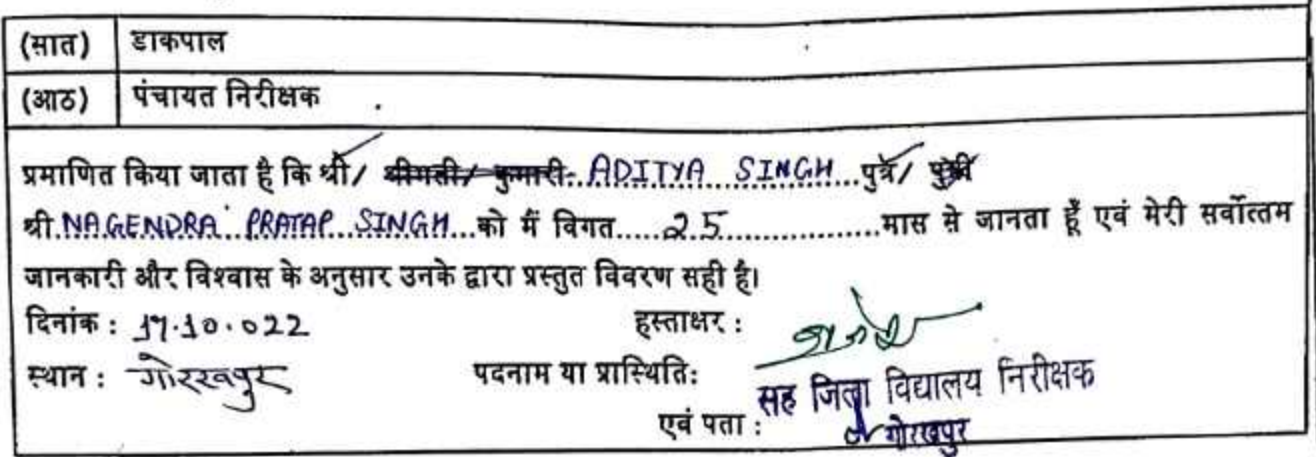 (सात) डाकपाल
(आठ) पंचायत निरीक्षक
प्रमाणित किया जाता है कि श्री/ श्रीमती/ कुमारी ADITYA SINGH पुत्र/ पुत्री
श्री NAGENDRA PRATAP SINGH को मैं विगत 25 मास से जानता हूँ एवं मेरी सर्वोत्तम
जानकारी और विश्वास के अनुसार उनके द्वारा प्रस्तुत विवरण सही है।
दिनांक : 17.10.022 हस्ताक्षर :
स्थान : गोरखपुर पदनाम या प्रास्थिति: सह जिला विद्यालय निरीक्षक
एवं पता : गोरखपुर